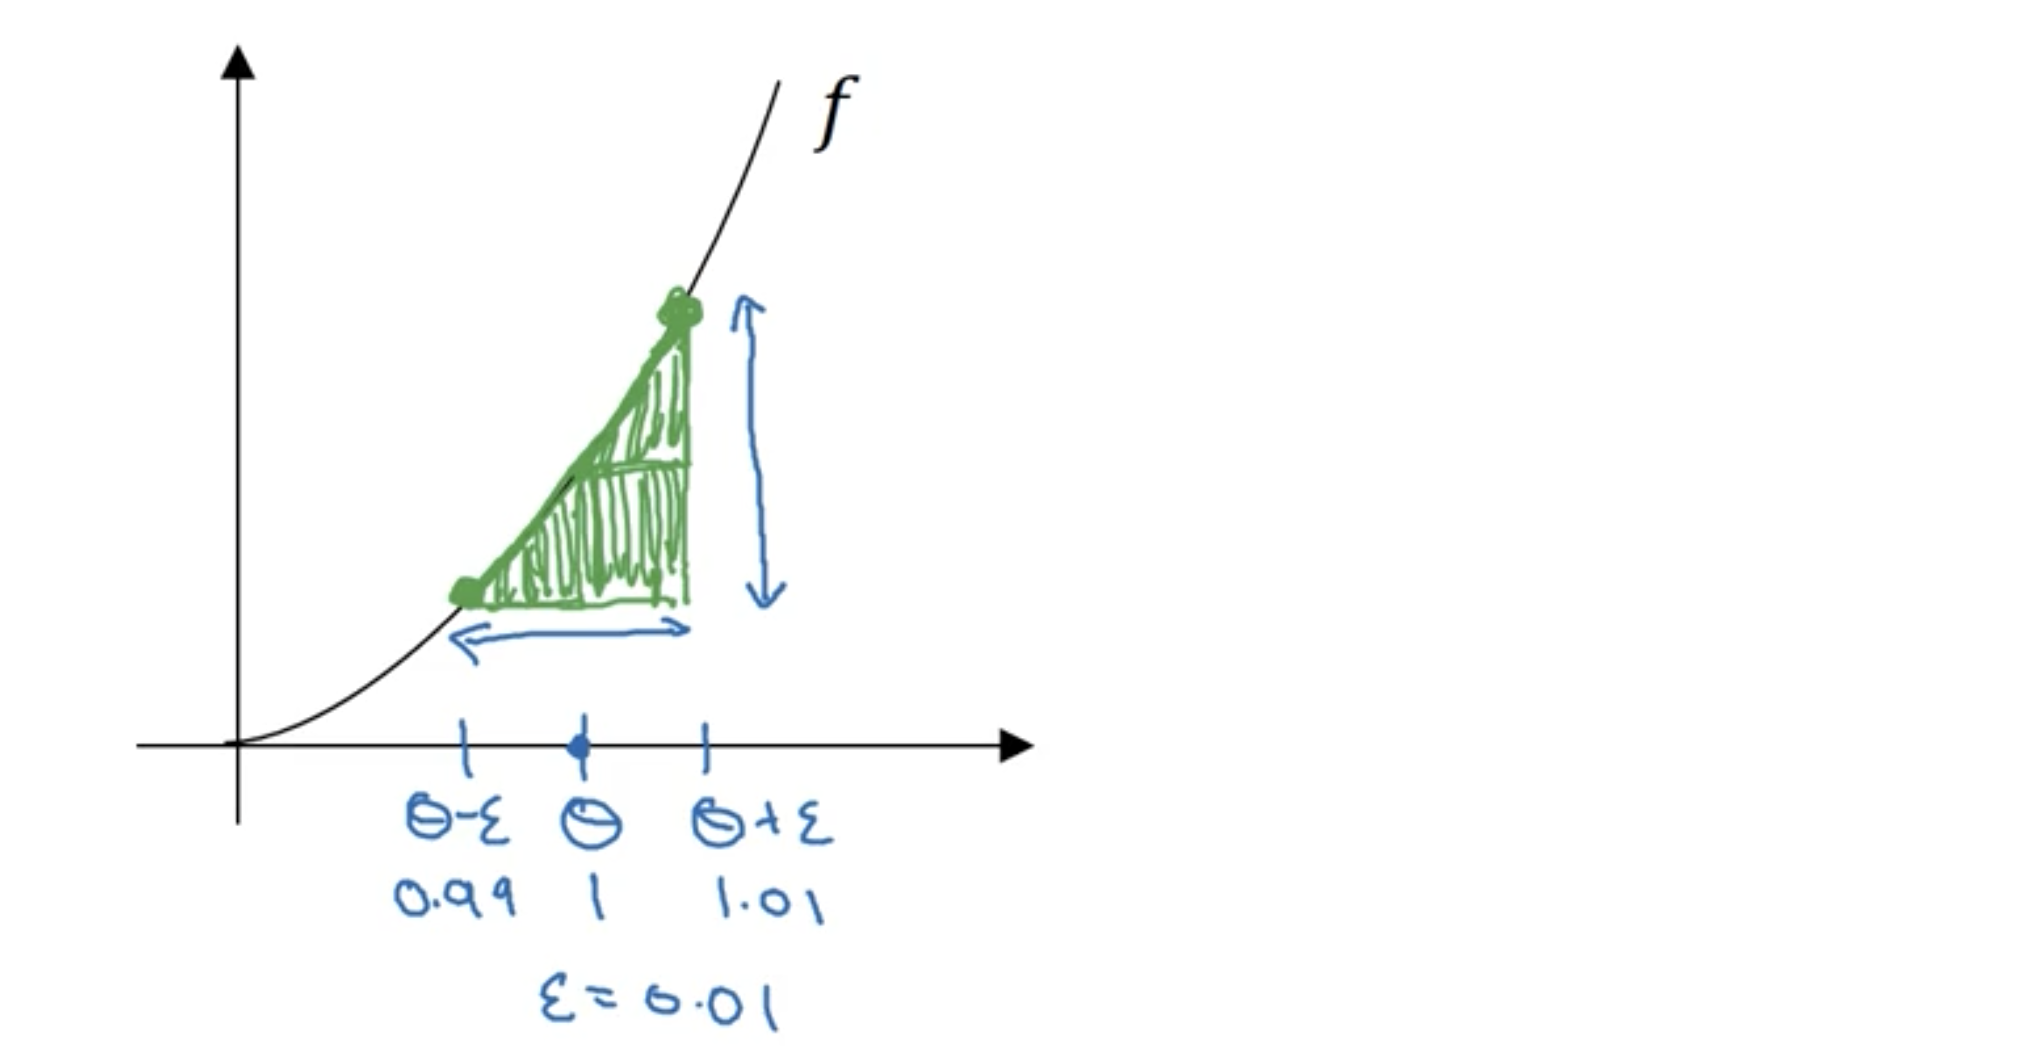 f
θ-ε θ θ+ε
0.99 1 1.01
ε = 0.01